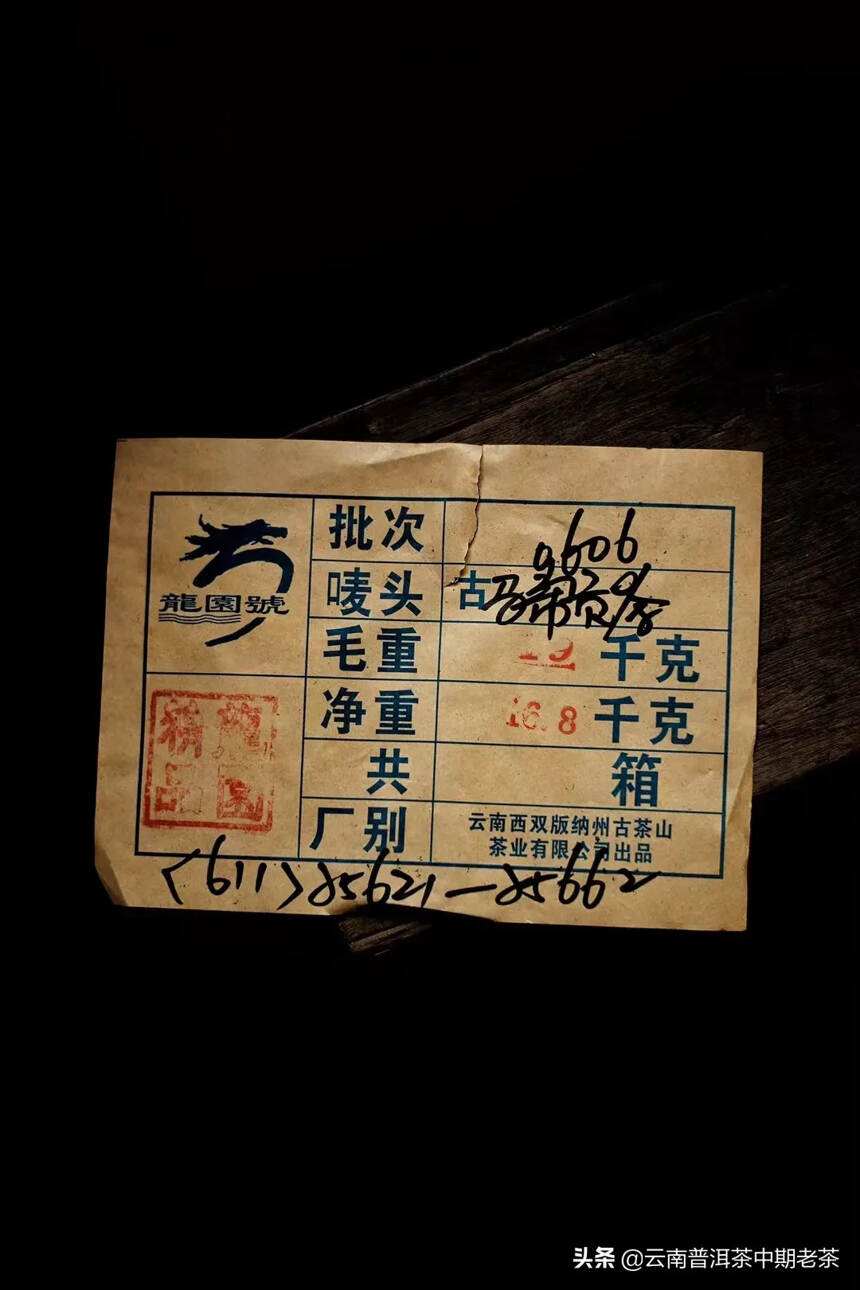 龍園號
批次 0606
唛头 古马帮贡茶
毛重 19 千克
净重 16.8 千克
共 箱
厂别 云南西双版纳州古茶山
茶业有限公司出品
龍园
精品
<611>85621—85662
头条 @云南普洱茶中期老茶